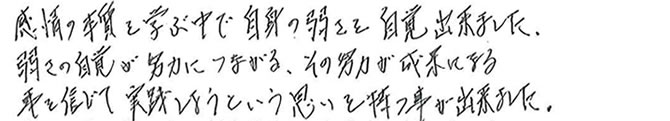 感情の本質を学ぶ中で自身の弱さを自覚出来ました。
弱さの自覚が努力につながる、その努力が成果になる
事を信じて実践しようという思いを持つ事が出来ました。